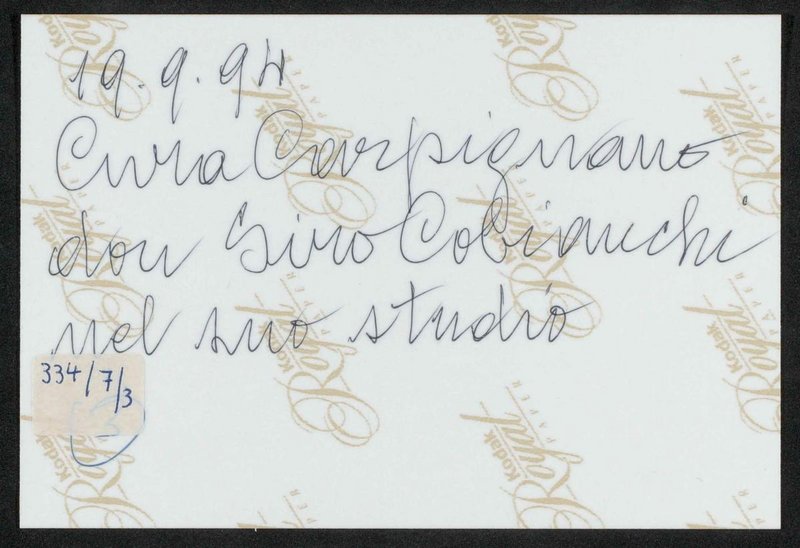 19.9.94
Cura Carpignano
don Siro Cobianchi
nel suo studio
334/7/3
3
Kodak
Royal
PAPER